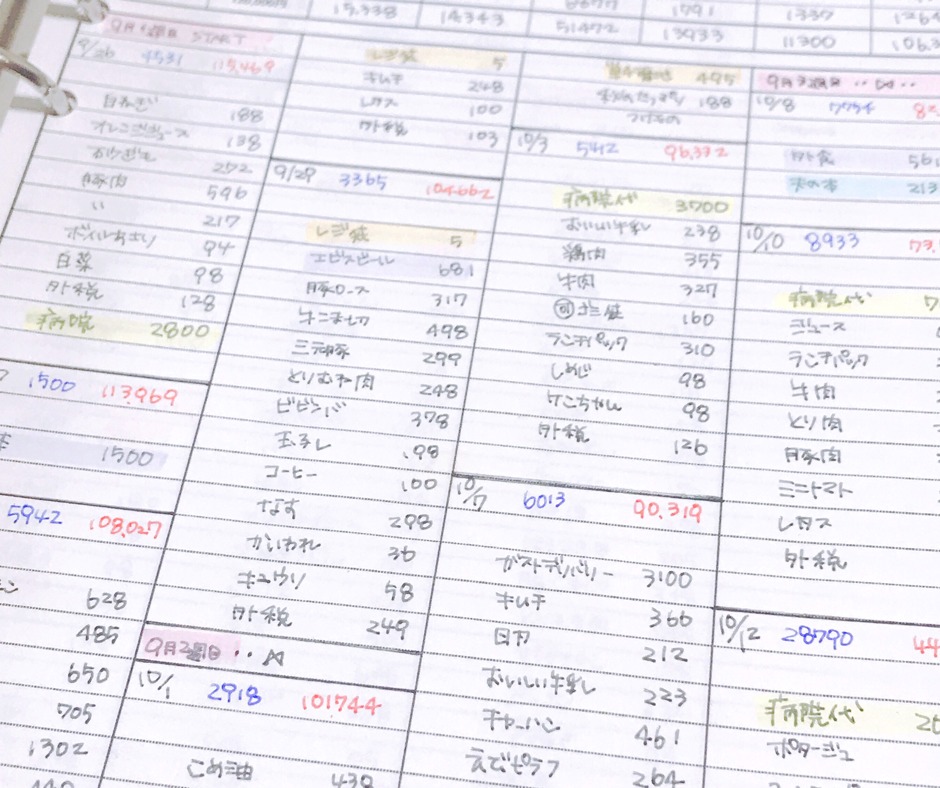 15,338
14,343
51472
1791
13933
1337
11300
9月1週目 START
9/26 4531 115,469
白ねぎ 188
オレンジジュース 138
252
豚肉 596
い 217
ボイルあさり 94
白菜 98
外税 128
病院 2800
1500 113,969
1500
5942 108,027
628
485
650
705
1302
レジ袋 5
キムチ 248
レタス 100
外税 103
9/29 3365 104,662
レジ袋 5
エビスビール 681
豚ロース 317
498
299
とりむね肉 248
ビビンバ 378
玉子し 98
コーヒー 100
なす 298
かいわれ 36
キュウリ 58
外税 249
9月2週目
10/1 2918 101744
こめ油 438
495
188
つけもの
10/3 5412 96,332
病院代 3700
おいしい牛乳 238
鶏肉 355
牛肉 327
ゴミ袋 160
ランチパック 310
しめじ 98
98
外税 126
10/7 6013 90,319
ガストデリバリー 3100
キムチ 366
212
おいしい牛乳 223
チャーハン 461
えびピラフ 264
9月3週目
10/8 7754
外食
天の本 213
10/10 8933 73,
病院代
ジュース
ランチパック
牛肉
とり肉
豚肉
ミニトマト
レタス
外税
10/12 28790 44
病院代
ポタージュ